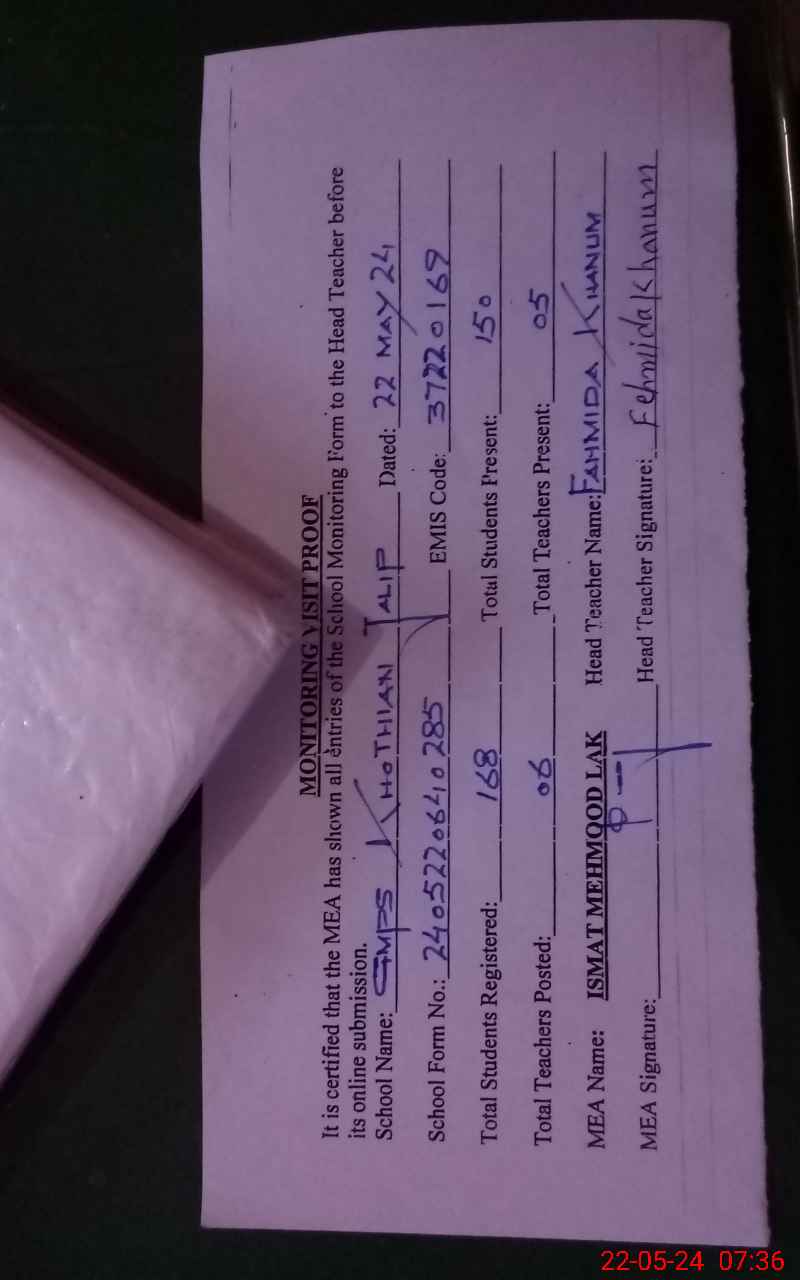 MONITORING VISIT PROOF
It is certified that the MEA has shown all entries of the School Monitoring Form to the Head Teacher before
its online submission.
School Name: GMPS KHOTHIAN JALIP Dated: 22 MAY 24
School Form No.: 2405220640285 EMIS Code: 37220169
Total Students Registered: 168 Total Students Present: 150
Total Teachers Posted: 06 Total Teachers Present: 05
MEA Name: ISMAT MEHMOOD LAK Head Teacher Name: FAHMIDA KHANUM
MEA Signature: Head Teacher Signature: Fehmida Khanum
22-05-24 07:36